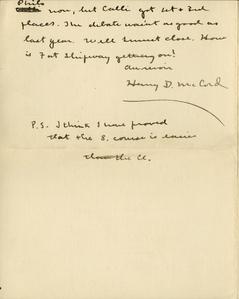 Philo
now, but Calli got 1st & 2nd
places. The debate wasn't as good as
last year. Will must close. How
is Fat Shipway getting on?
Au revoir
Henry D. McCord
P.S. I think I have proved
that the S. course is easier
than the Cl.